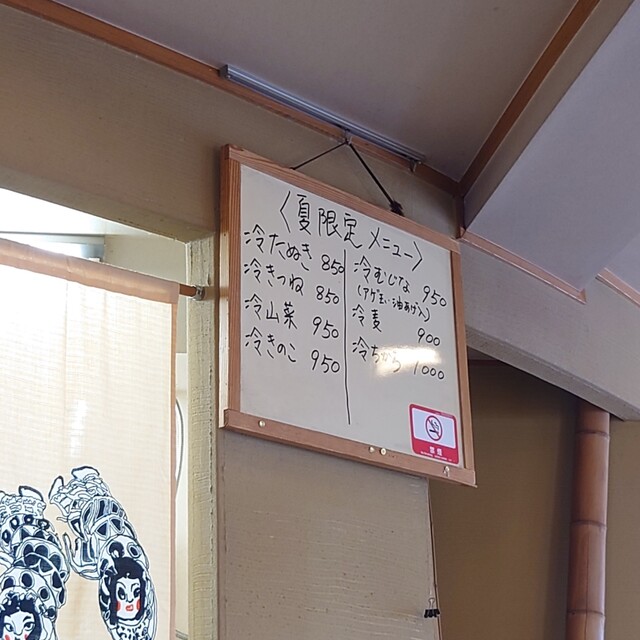 〈夏限定メニュー〉
冷たぬき 850
冷きつね 850
冷山菜 950
冷きのこ 950
冷むじな 950
(アゲ玉・油あげ入)
冷麦 900
冷ちから 1000
禁煙